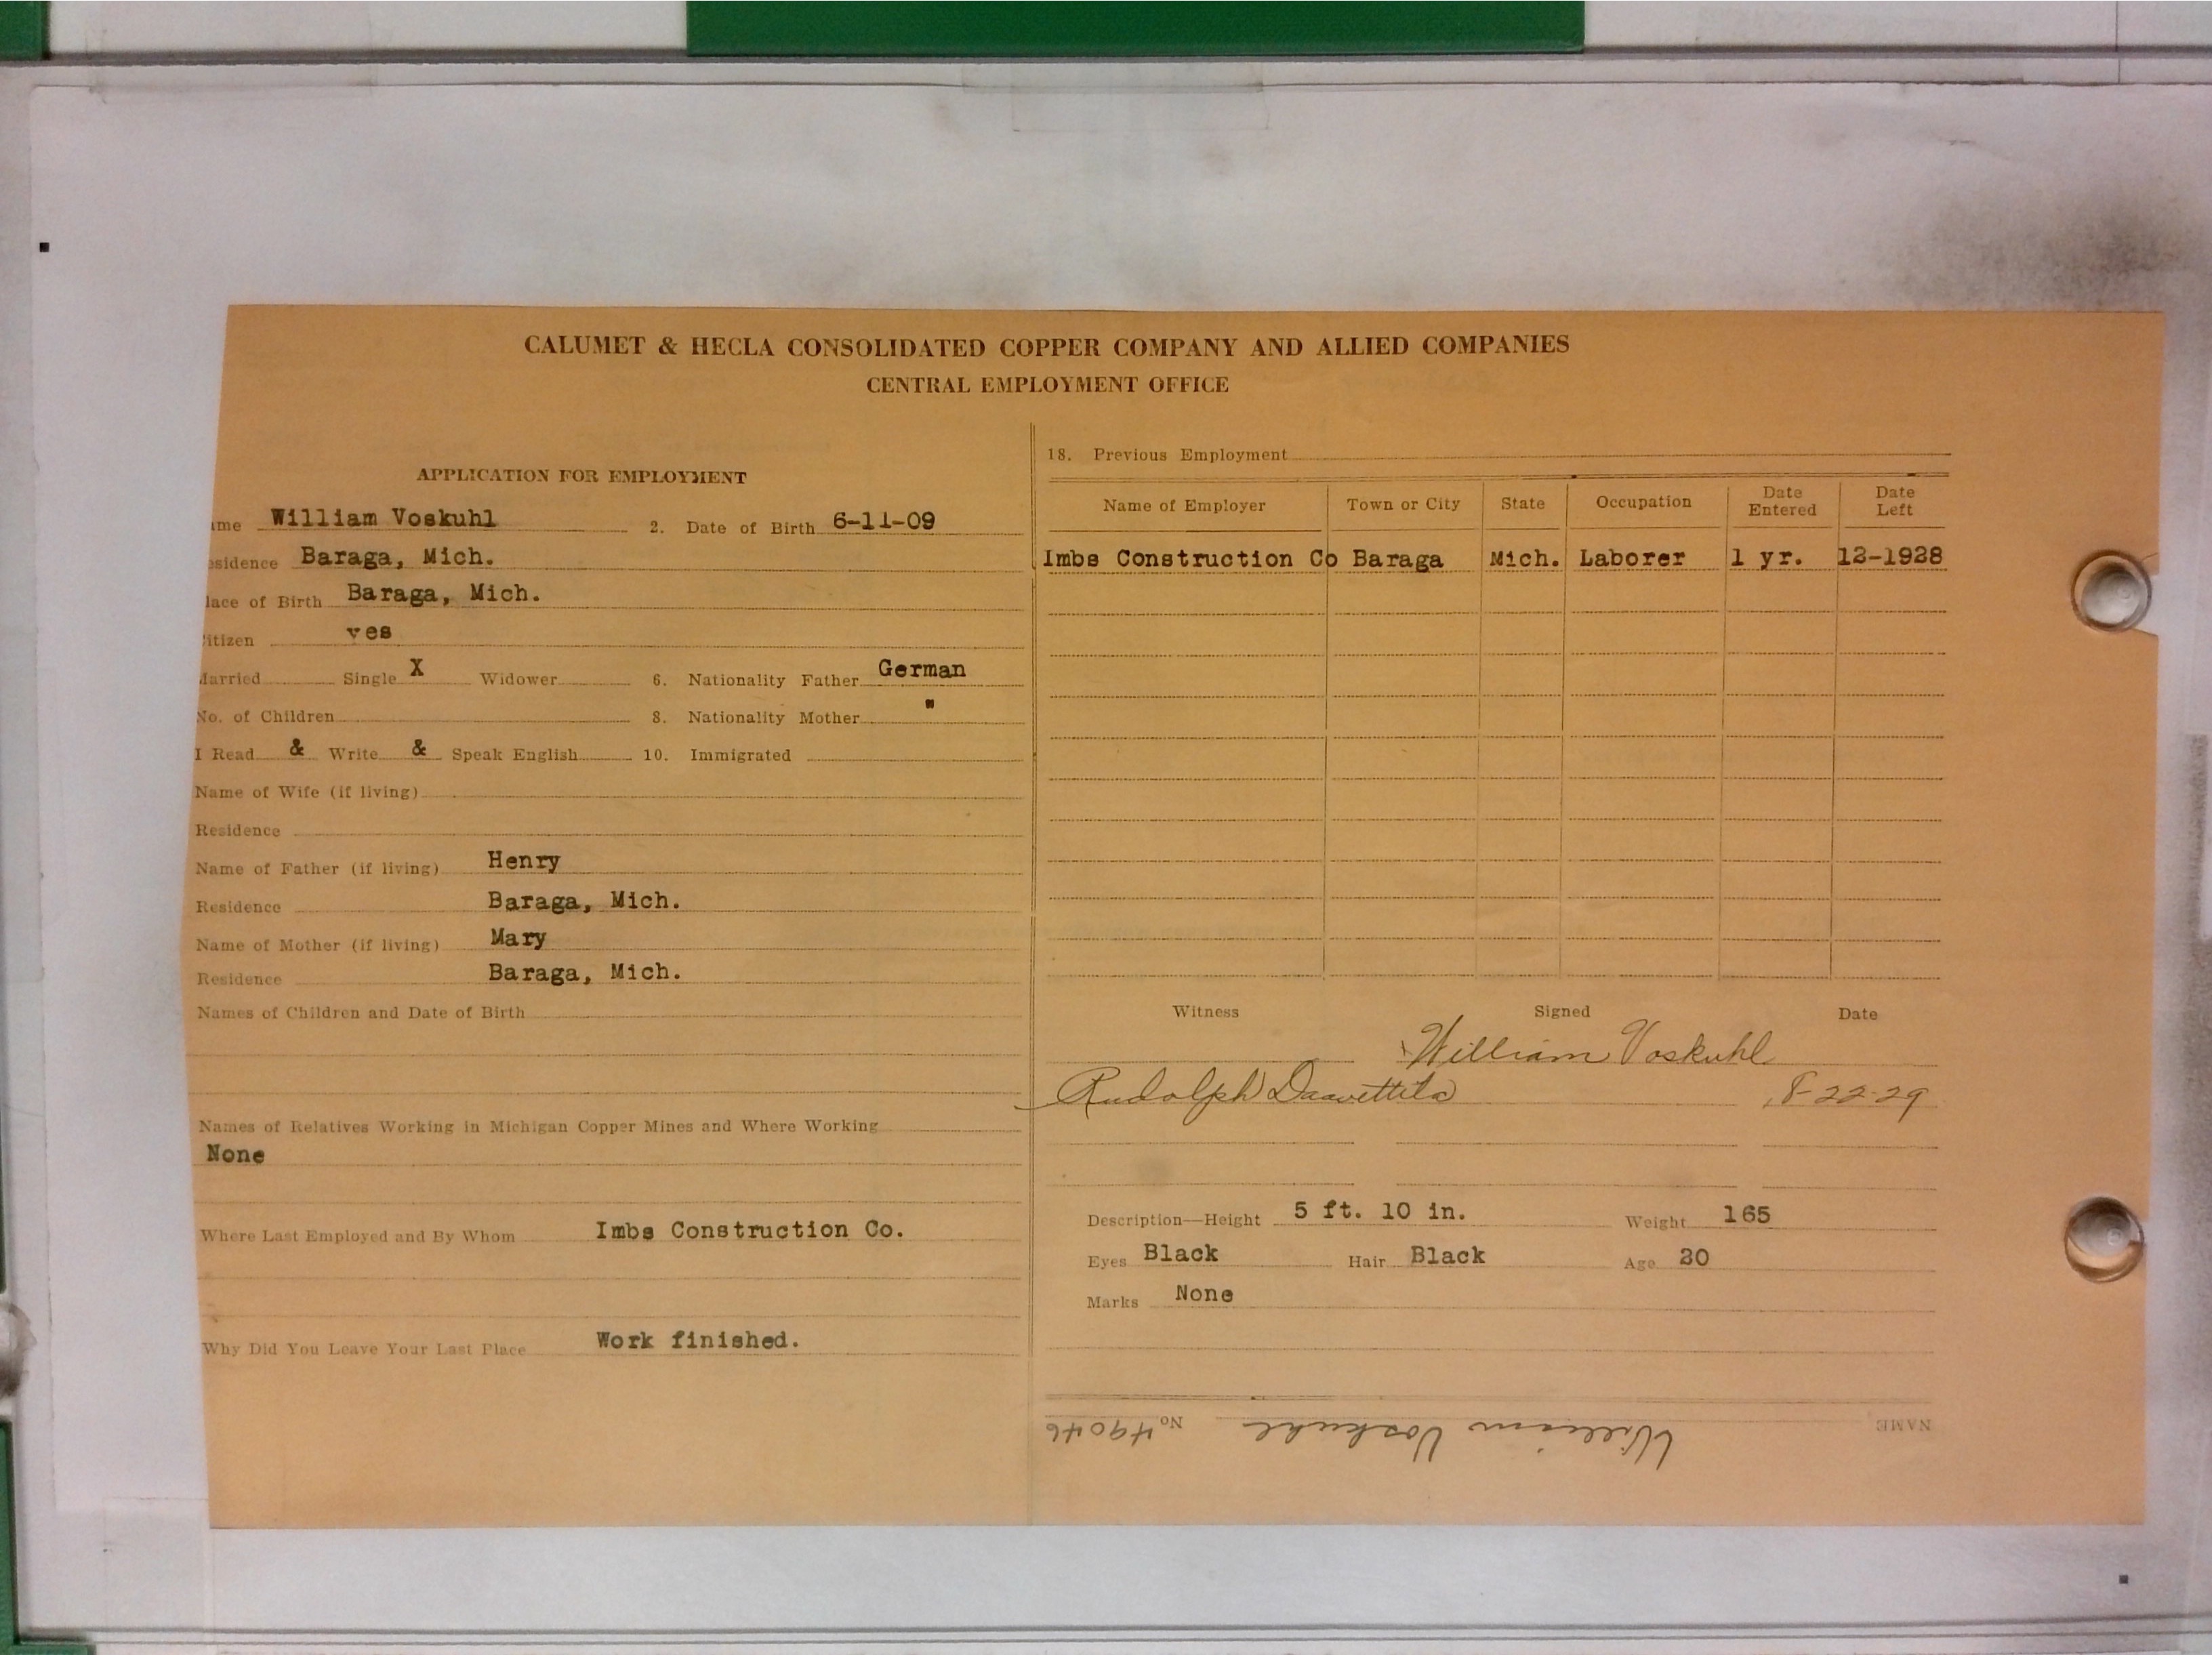 CALUMET & HECLA CONSOLIDATED COPPER COMPANY AND ALLIED COMPANIES
CENTRAL EMPLOYMENT OFFICE
APPLICATION FOR EMPLOYMENT
ame William Voskuhl 2. Date of Birth 6-11-09
esidence Baraga, Mich.
lace of Birth Baraga, Mich.
itizen yes
Married Single X Widower 6. Nationality Father German
No. of Children 8. Nationality Mother "
I Read & Write & Speak English 10. Immigrated
Name of Wife (if living)
Residence
Name of Father (if living) Henry
Residence Baraga, Mich.
Name of Mother (if living) Mary
Residence Baraga, Mich.
Names of Children and Date of Birth
Names of Relatives Working in Michigan Copper Mines and Where Working
None
Where Last Employed and By Whom Imbs Construction Co.
Why Did You Leave Your Last Place Work finished.
18. Previous Employment
Name of Employer Town or City State Occupation Date Entered Date Left
Imbs Construction Co Baraga Mich. Laborer 1 yr. 12-1928
Witness Signed Date
William Voskuhl
Rudolph Daavettila 8-22-29
Description—Height 5 ft. 10 in. Weight 165
Eyes Black Hair Black Age 20
Marks None
NAME William Voskuhl No 49046